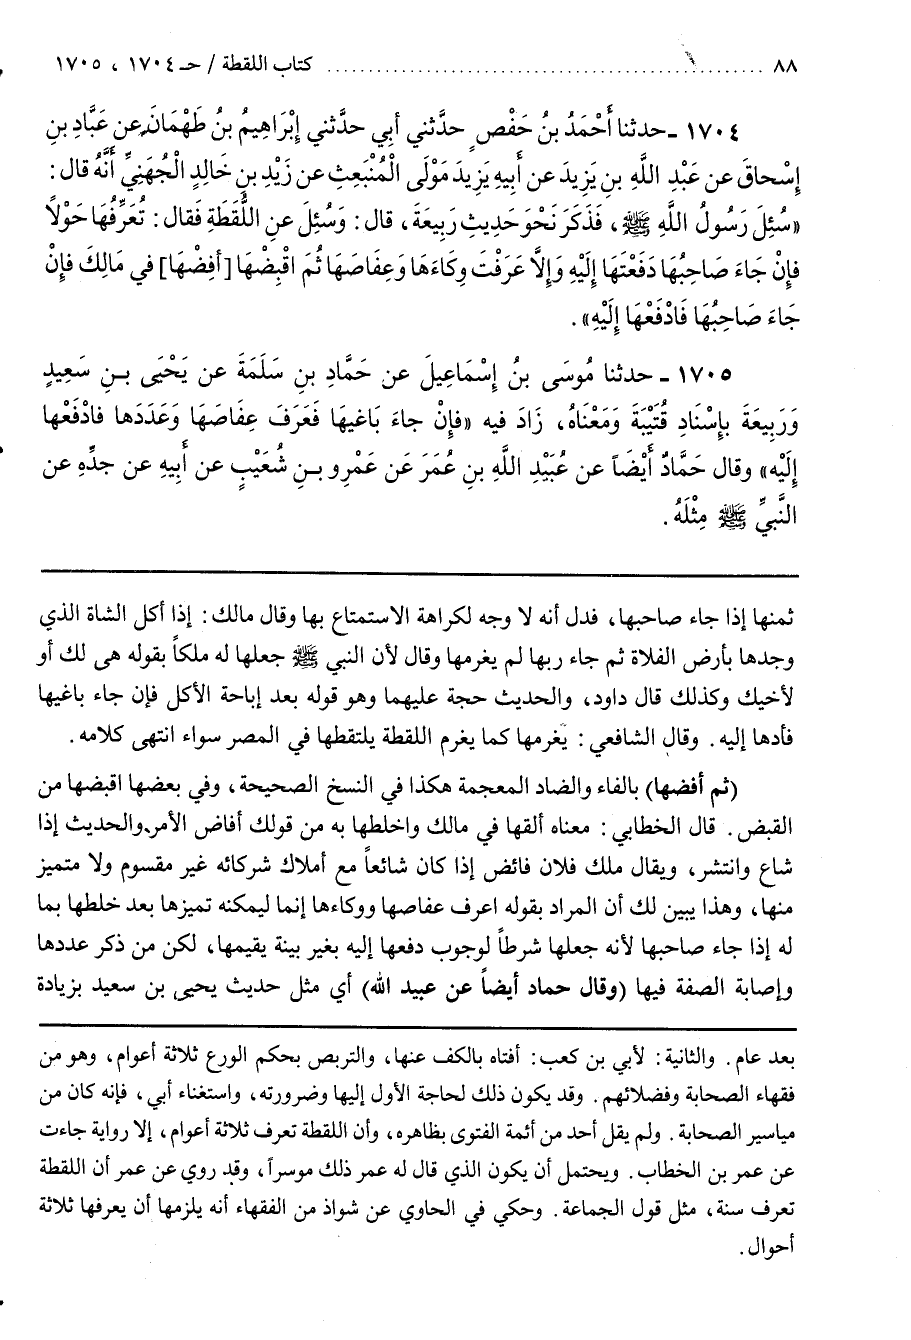 ٨٨ ............................................ كتاب اللقطة / حـ ١٧٠٤ ، ١٧٠٥
١٧٠٤ ـ حدثنا أَحْمَدُ بنُ حَفْصٍ حدَّثني أبِي حدَّثني إبْرَاهِيمُ بنُ طَهْمَانَ عن عَبَّادِ بنِ
إسْحاقَ عن عَبْدِ اللَّهِ بنِ يَزِيدَ عن أبِيهِ يَزِيدَ مَوْلَى الْمُنْبَعِثِ عن زَيْدِ بنِ خَالِدٍ الْجُهَنِيِّ أَنَّهُ قال:
«سُئِلَ رَسُولُ اللَّهِ ﷺ، فَذَكَرَ نَحْوَ حَدِيثِ رَبِيعَةَ، قال: وَسُئِلَ عنِ اللُّقَطَةِ فَقال: تُعَرِّفُهَا حَوْلاً
فإنْ جَاءَ صَاحِبُهَا دَفَعْتَهَا إلَيْهِ وَإلَّا عَرَفْتَ وِكَاءَهَا وَعِفَاصَهَا ثُمَّ اقْبِضْهَا [أفِضْهَا] في مَالِكَ فإنْ
جَاءَ صَاحِبُهَا فَادْفَعْهَا إلَيْهِ».
١٧٠٥ ـ حدثنا مُوسَى بنُ إسْمَاعِيلَ عن حَمَّادِ بنِ سَلَمَةَ عن يَحْيَى بـنِ سَعِيدٍ
وَرَبِيعَةَ بإسْنَادِ قُتَيْبَةَ وَمَعْنَاهُ، زَادَ فيه «فإنْ جاءَ بَاغِيهَا فَعَرَفَ عِفَاصَهَا وَعَدَدَها فادْفَعْها
إلَيْه» وقال حَمَّادٌ أَيْضَاً عن عُبَيْدِ اللَّهِ بنِ عُمَرَ عَن عَمْرِو بـنِ شُعَيْبٍ عن أَبِيهِ عن جدِّهِ عن
النَّبيِّ ﷺ مِثْلَهُ.
ثمنها إذا جاء صاحبها، فدل أنه لا وجه لكراهة الاستمتاع بها وقال مالك: إذا أكل الشاة الذي
وجدها بأرض الفلاة ثم جاء ربها لم يغرمها وقال لأن النبي ﷺ جعلها له ملكاً بقوله هى لك أو
لأخيك وكذلك قال داود، والحديث حجة عليهما وهو قوله بعد إباحة الأكل فإن جاء باغيها
فأدها إليه. وقال الشافعي: يغرمها كما يغرم اللقطة يلتقطها في المصر سواء انتهى كلامه.
(ثم أفضها) بالفاء والضاد المعجمة هكذا في النسخ الصحيحة، وفي بعضها اقبضها من
القبض. قال الخطابي: معناه ألقها في مالك واخلطها به من قولك أفاض الأمر والحديث إذا
شاع وانتشر، ويقال ملك فلان فائض إذا كان شائعاً مع أملاك شركائه غير مقسوم ولا متميز
منها، وهذا يبين لك أن المراد بقوله اعرف عفاصها ووكاءها إنما ليمكنه تميزها بعد خلطها بما
له إذا جاء صاحبها لأنه جعلها شرطاً لوجوب دفعها إليه بغير بينة يقيمها، لكن من ذكر عددها
وإصابة الصفة فيها (وقال حماد أيضاً عن عبيد الله) أي مثل حديث يحيى بن سعيد بزيادة
بعد عام. والثانية: لأبي بن كعب: أفتاه بالكف عنها، والتربص بحكم الورع ثلاثة أعوام، وهو من
فقهاء الصحابة وفضلائهم. وقد يكون ذلك لحاجة الأول إليها وضرورته، واستغناء أبي، فإنه كان من
مياسير الصحابة. ولم يقل أحد من أئمة الفتوى بظاهره، وأن اللقطة تعرف ثلاثة أعوام، إلا رواية جاءت
عن عمر بن الخطاب. ويحتمل أن يكون الذي قال له عمر ذلك موسراً، وقد روي عن عمر أن اللقطة
تعرف سنة، مثل قول الجماعة. وحكي في الحاوي عن شواذ من الفقهاء أنه يلزمها أن يعرفها ثلاثة
أحوال.